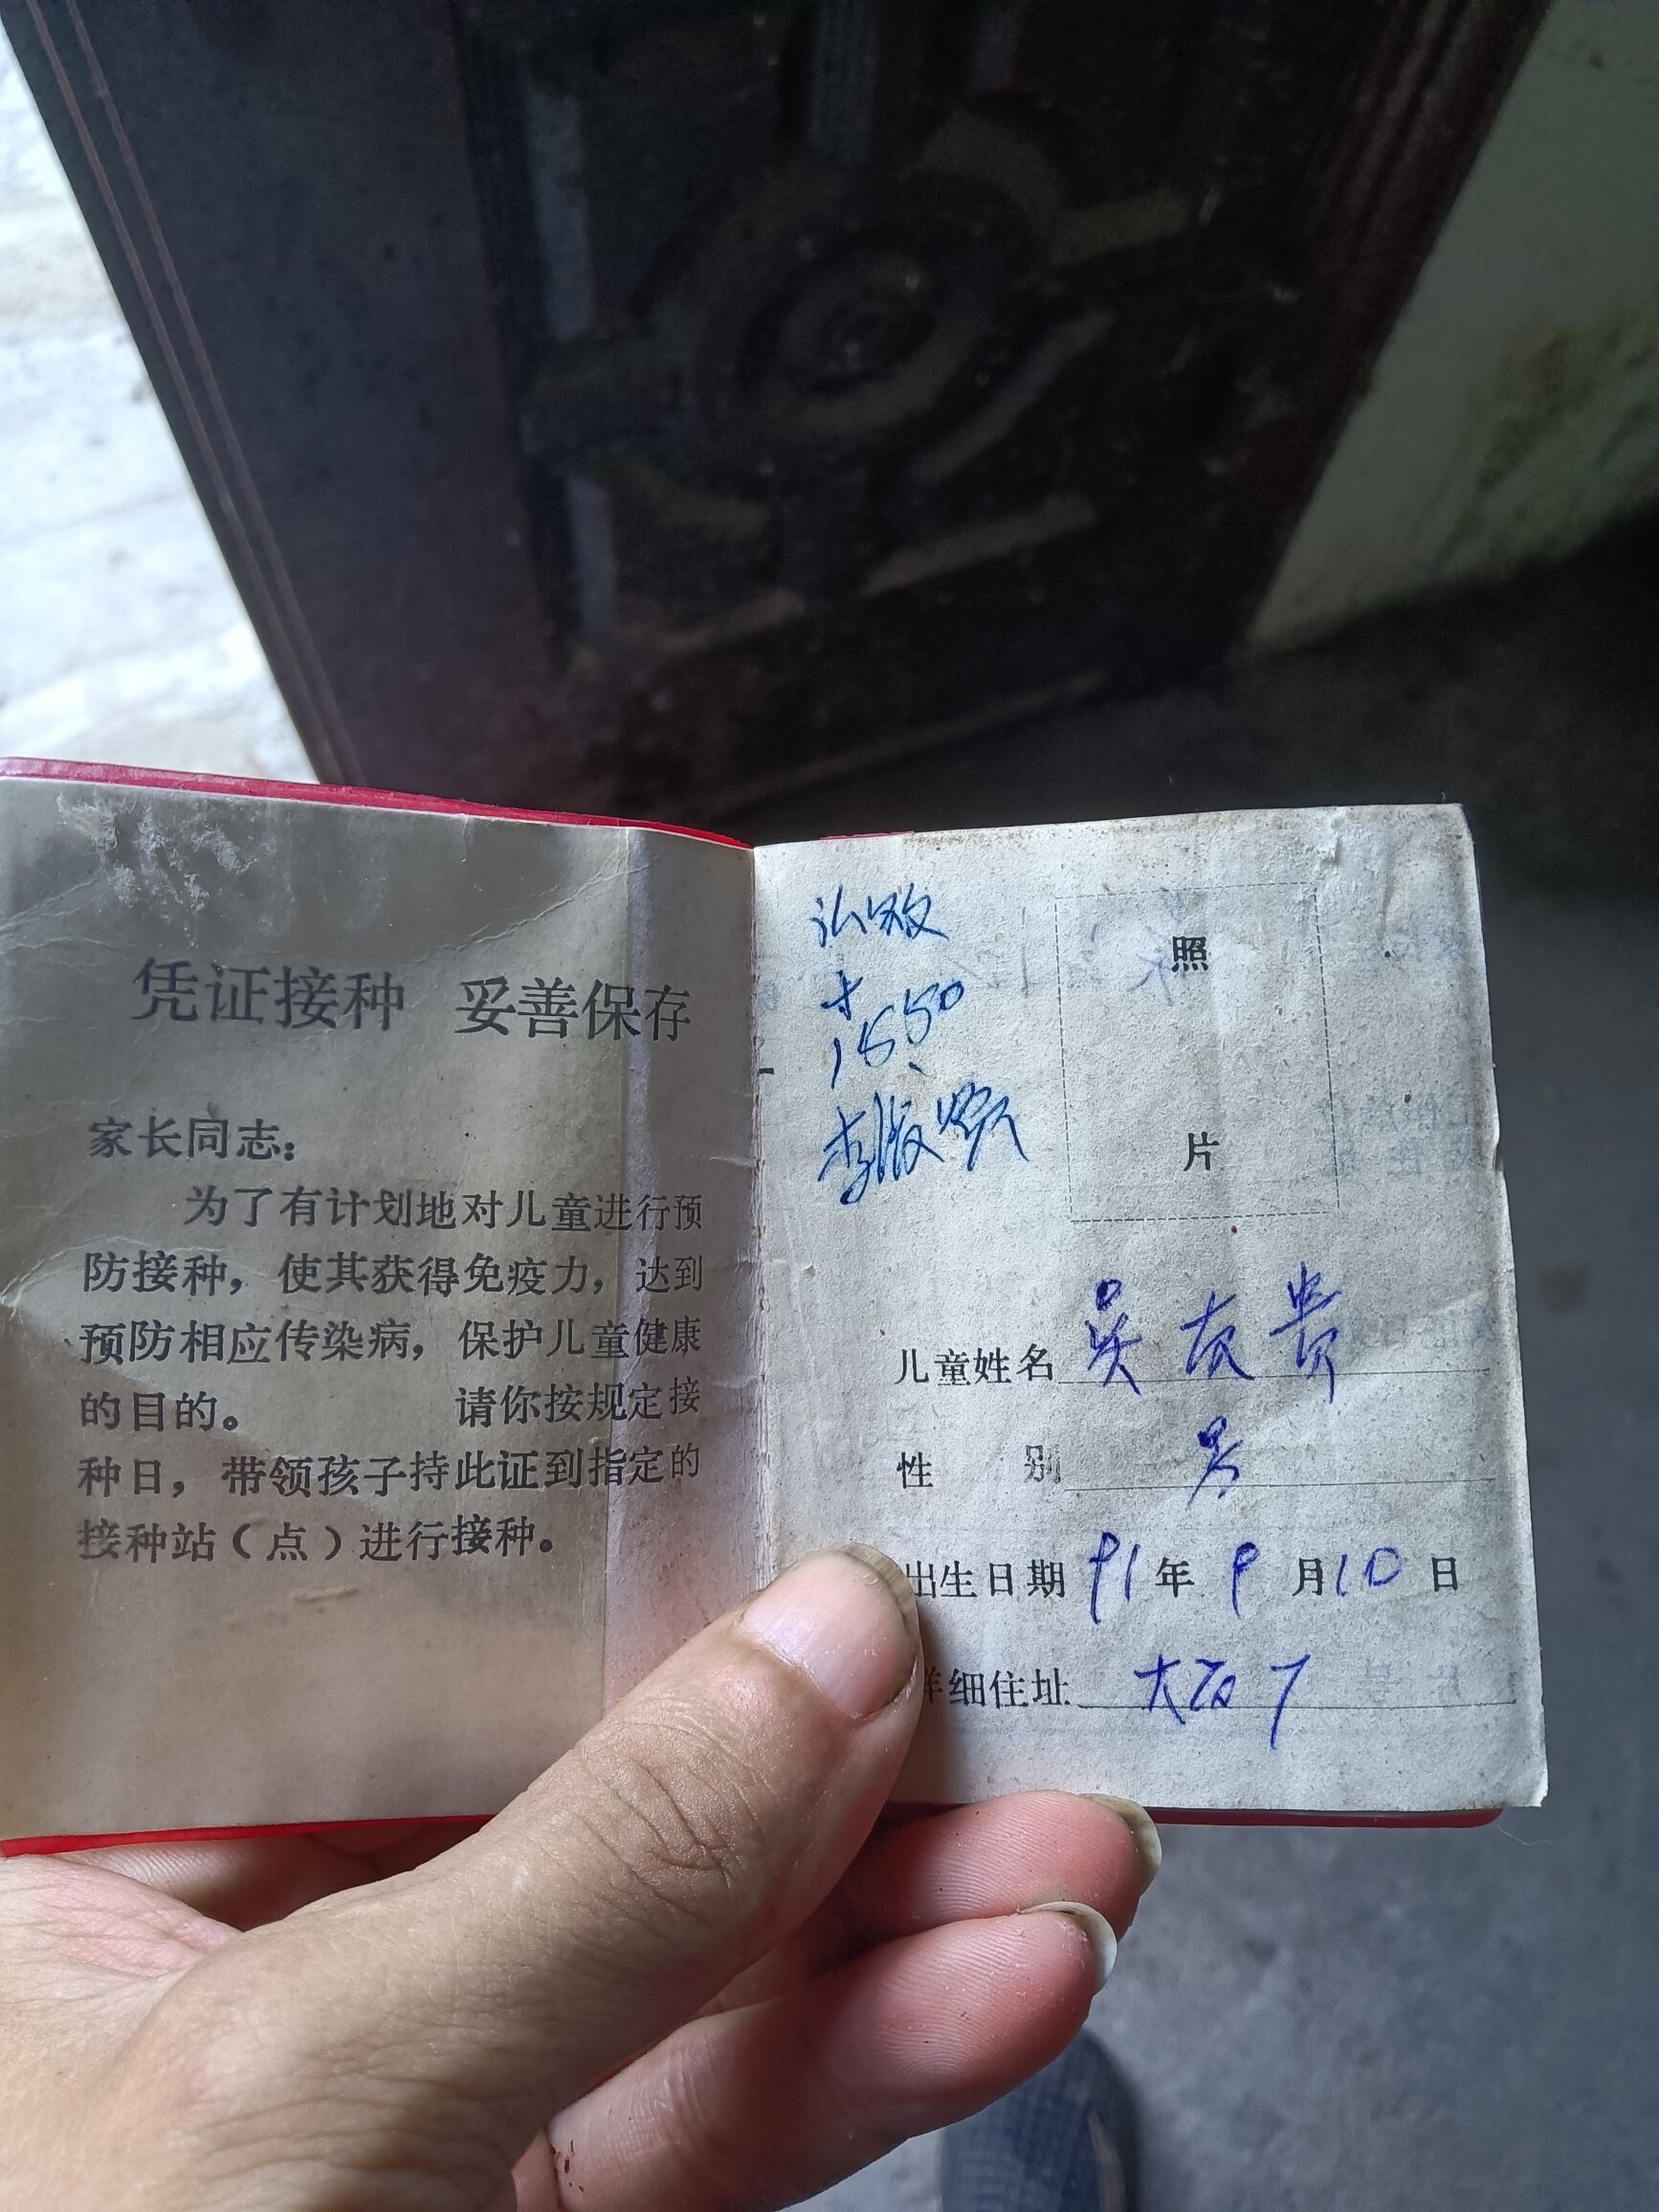 凭证接种 妥善保存
家长同志：
为了有计划地对儿童进行预
防接种，使其获得免疫力，达到
预防相应传染病，保护儿童健康
的目的。 请你按规定接
种日，带领孩子持此证到指定的
接种站（点）进行接种。
1550
照
片
儿童姓名 吴友贵
性 别 男
出生日期 91年 9 月10 日
详细住址 大石丁